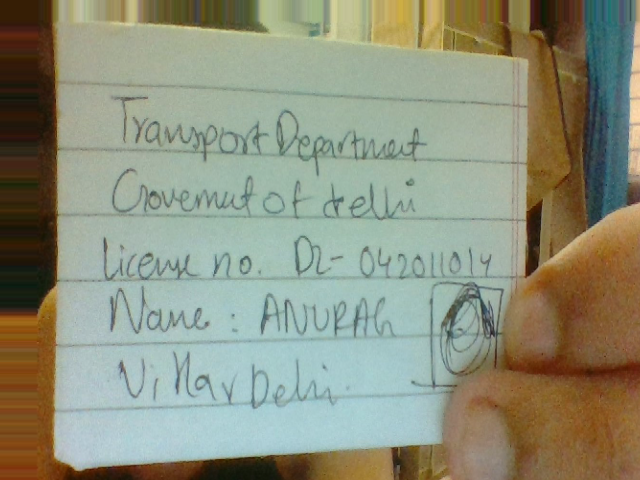 Transport Department
Government of Delhi
License no. DL-042011014
Name: ANURAG
Vihar Delhi.